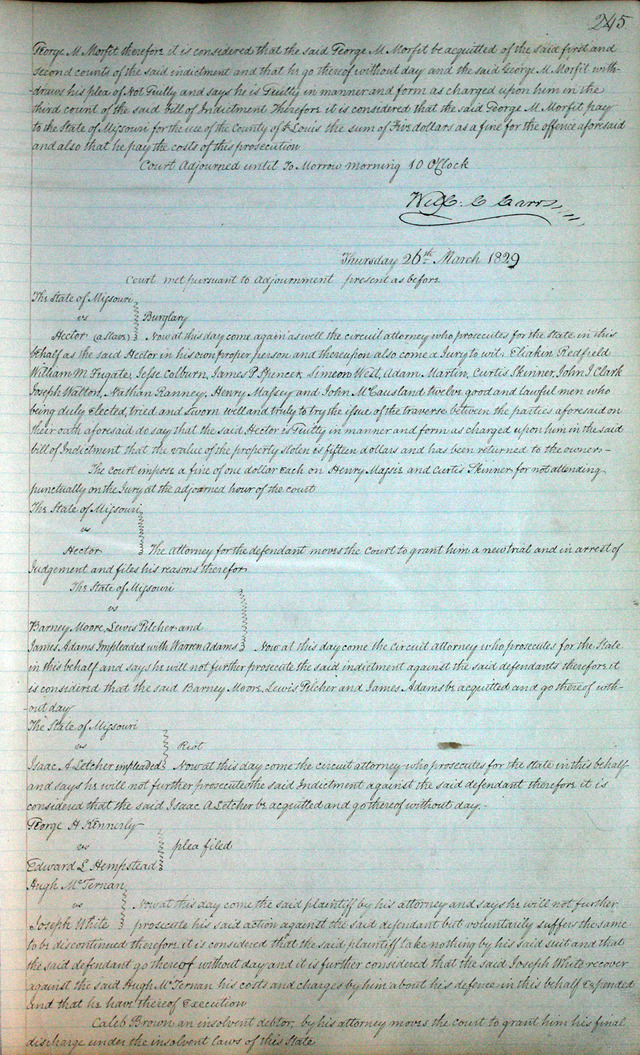 245
George M. Morfit therefore it is considered that the said George M. Morfit be acquitted of the said first and
second counts of the said indictment and that he go thereof without day and the said George M. Morfit with-
-draws his plea of Not Guilty and says he is Guilty in manner and form as charged upon him in the
third count of the said bill of Indictment Therefore it is considered that the said George M. Morfit pay
to the State of Missouri for the use of the County of St Louis the sum of Five dollars as a fine for the offence aforesaid
and also that he pay the costs of this prosecution
Court Adjourned until To Morrow morning 10 OClock
Will. C Carr
Thursday 26th March 1829
Court met pursuant to Adjournment present as before
The State of Missouri
vs Burglary
Hector (a slave) Now at this day come again as well the circuit attorney who prosecutes for the state in this
behalf as the said Hector in his own proper person and thereupon also come a Jury to wit, Eliakin Redfield
William M. Fugate, Jesse Colburn, James P. Spencer, Simeon West, Adam Martin, Curtis Skinner, John J Clark
Joseph Walton, Nathan Ranney, Henry Massey and John McCausland twelve good and lawful men who
being duly Elected, tried and Sworn well and truly to try the issue of the traverse between the parties aforesaid on
their oath aforesaid do say that the said Hector is Guilty in manner and form as charged upon him in the said
bill of Indictment that the value of the property stolen is fifteen dollars and has been returned to the owner.-
The Court impose a fine of one dollar each on Henry Massie and Curtis Skinner for not attending
punctually on the Jury at the adjourned hour of the court
The State of Missouri
vs
Hector The attorney for the defendant moves the Court to grant him a new trial and in arrest of
Judgement and files his reasons therefor
The State of Missouri
vs
Barney Moore, Lewis Pilcher and
James Adams Impleaded with Warren Adams Now at this day come the circuit attorney who prosecutes for the State
in this behalf and says he will not further prosecute the said indictment against the said defendants therefore it
is considered that the said Barney Moore, Lewis Pilcher and James Adams be acquitted and go thereof with-
-out day
The State of Missouri
vs Riot
Isaac A Letcher impleaded Now at this day come the circuit attorney who prosecutes for the state in this behalf
and says he will not further prosecute the said Indictment against the said defendant therefore it is
considered that the said Isaac A Letcher be acquitted and go thereof without day.
George H Kennerly
vs plea filed
Edward L Hempstead
Hugh McTernan
vs Now at this day come the said plaintiff by his attorney and says he will not further
Joseph White prosecute his said action against the said defendant but voluntarily suffers the same
to be discontinued therefore it is considered that the said plaintiff take nothing by his said suit and that
the said defendant go thereof without day and it is further considered that the said Joseph White recover
against the said Hugh McTernan his costs and charges by him about his defence in this behalf expended
and that he have thereof execution
Caleb Brown an insolvent debtor, by his attorney moves the court to grant him his final
discharge under the insolvent laws of this State